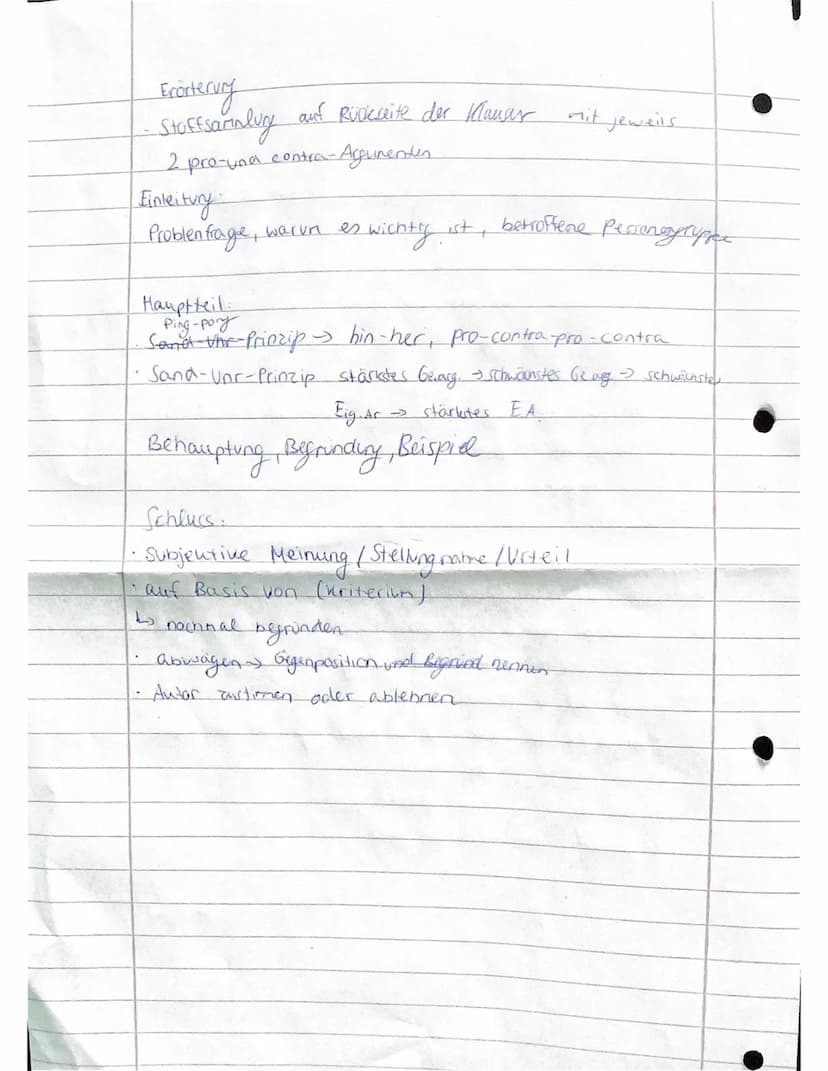 Erörterung
- Stoffsammlug auf Rückseite der Klausur mit jeweils
2 pro-und contra-Argumenten
Einleitung:
Problemfrage, warum es wichtig ist, betroffene Personengruppe
Hauptteil:
Ping-pong
· Sand-Uhr-Prinzip → hin-her, pro-contra-pro-contra
· Sand-Uhr-Prinzip stärkstes Ge.arg. → schwächstes Ge.arg → schwächstes
Eig.Ar → stärkstes E.A.
Behauptung, Begründung, Beispiel
Schluss:
· Subjektive Meinung / Stellungname / Urteil
· auf Basis von (Kriterium)
↳ nochmal begründen
· abwägen → Gegenposition und Begründ nennen
· Autor zustimmen oder ablehnen